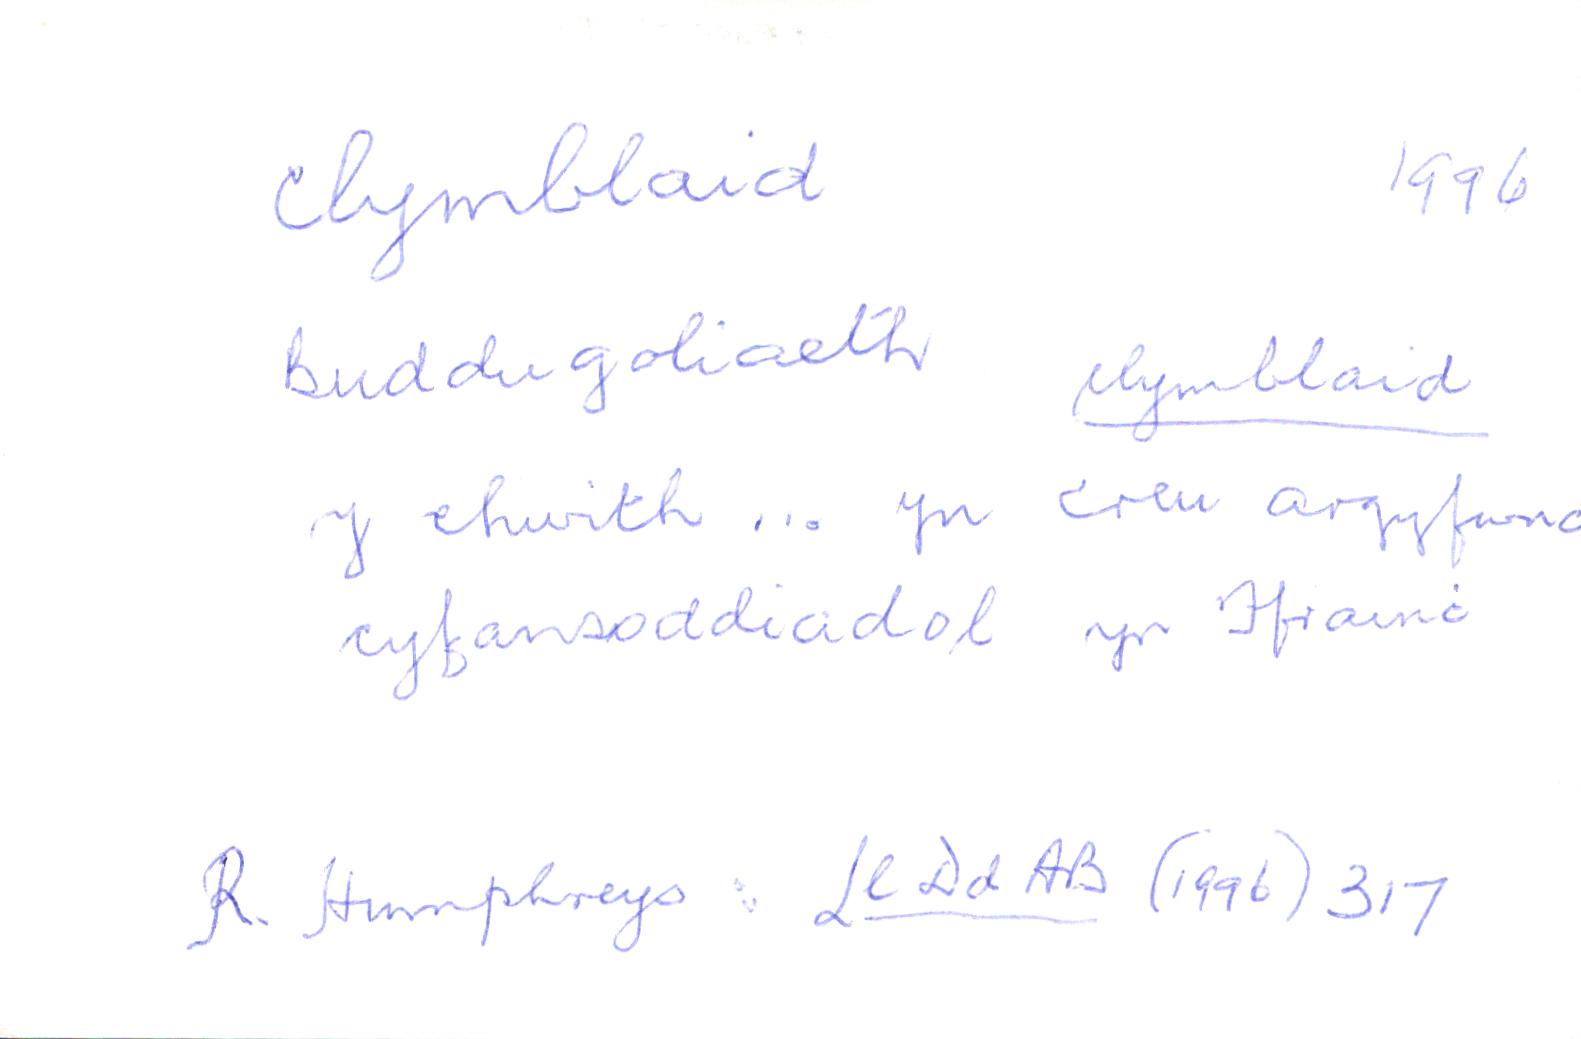 clymblaid 1996
Buddugoliaeth clymblaid
y chwith ... yn creu argyfwng
cyfansoddiadol yn Ffrainc
R. Humphreys : Ll Dd AB (1996) 317